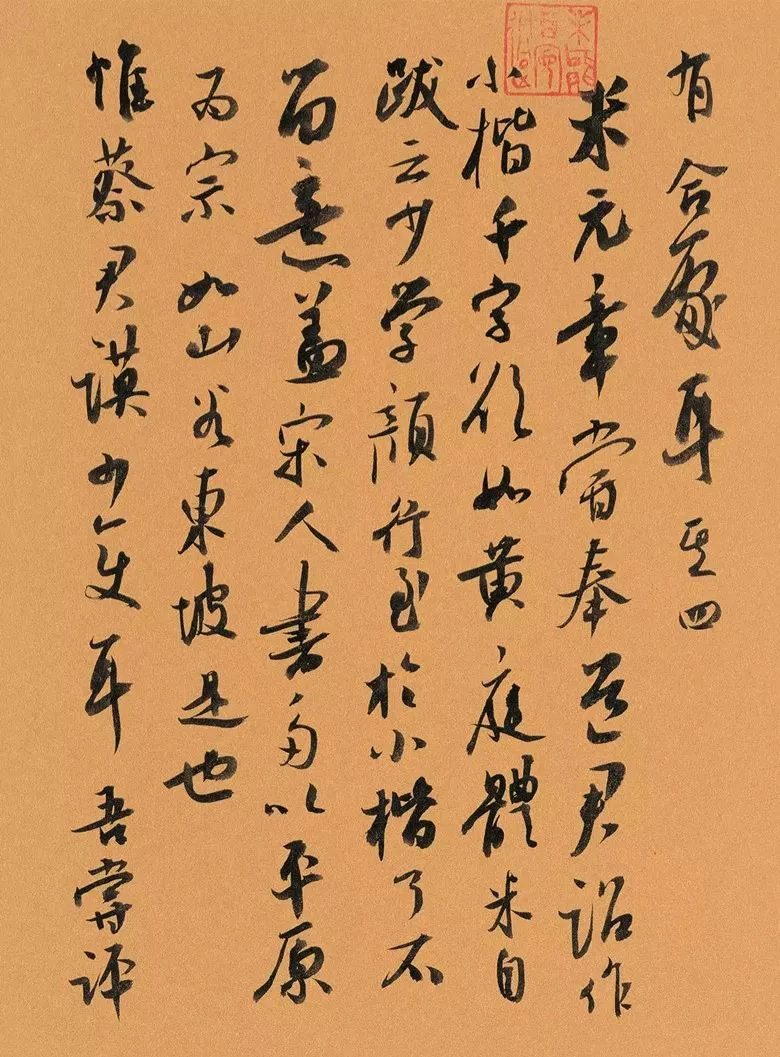 有合處耳其四
米元章嘗奉道君詔作
小楷千字欲如黄庭體米自
跋云少学顔行至於小楷了不
留意盖宋人書多以平原
為宗如山谷東坡是也
惟蔡君謨少变耳吾嘗評